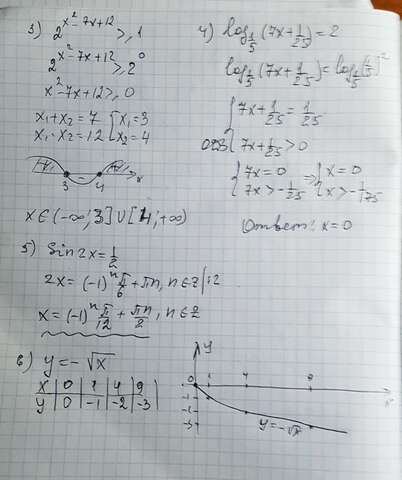 3) 2^(x²-7x+12) ≥ 1
2^(x²-7x+12) ≥ 2^0
x²-7x+12 ≥ 0
x₁+x₂=7 { x₁=3
x₁·x₂=12 { x₂=4
+ - + x
3 4
x∈(-∞;3]∪[4;+∞)
4) log_(1/5)(7x+1/25)=2
log_(1/5)(7x+1/25)=log_(1/5)(1/5)²
{ 7x+1/25=1/25
ОДЗ { 7x+1/25>0
{ 7x=0 ⇒ { x=0
{ 7x>-1/25 { x>-1/175
Ответ: x=0
5) Sin2x=1/2
2x=(-1)^n π/6+πn, n∈Z |:2
x=(-1)^n π/12+πn/2, n∈Z
6) y=-√x
x | 0 | 1 | 4 | 9
y | 0 | -1 | -2 | -3
y
0 1 4 9 x
-1
-2
-3
y=-√x